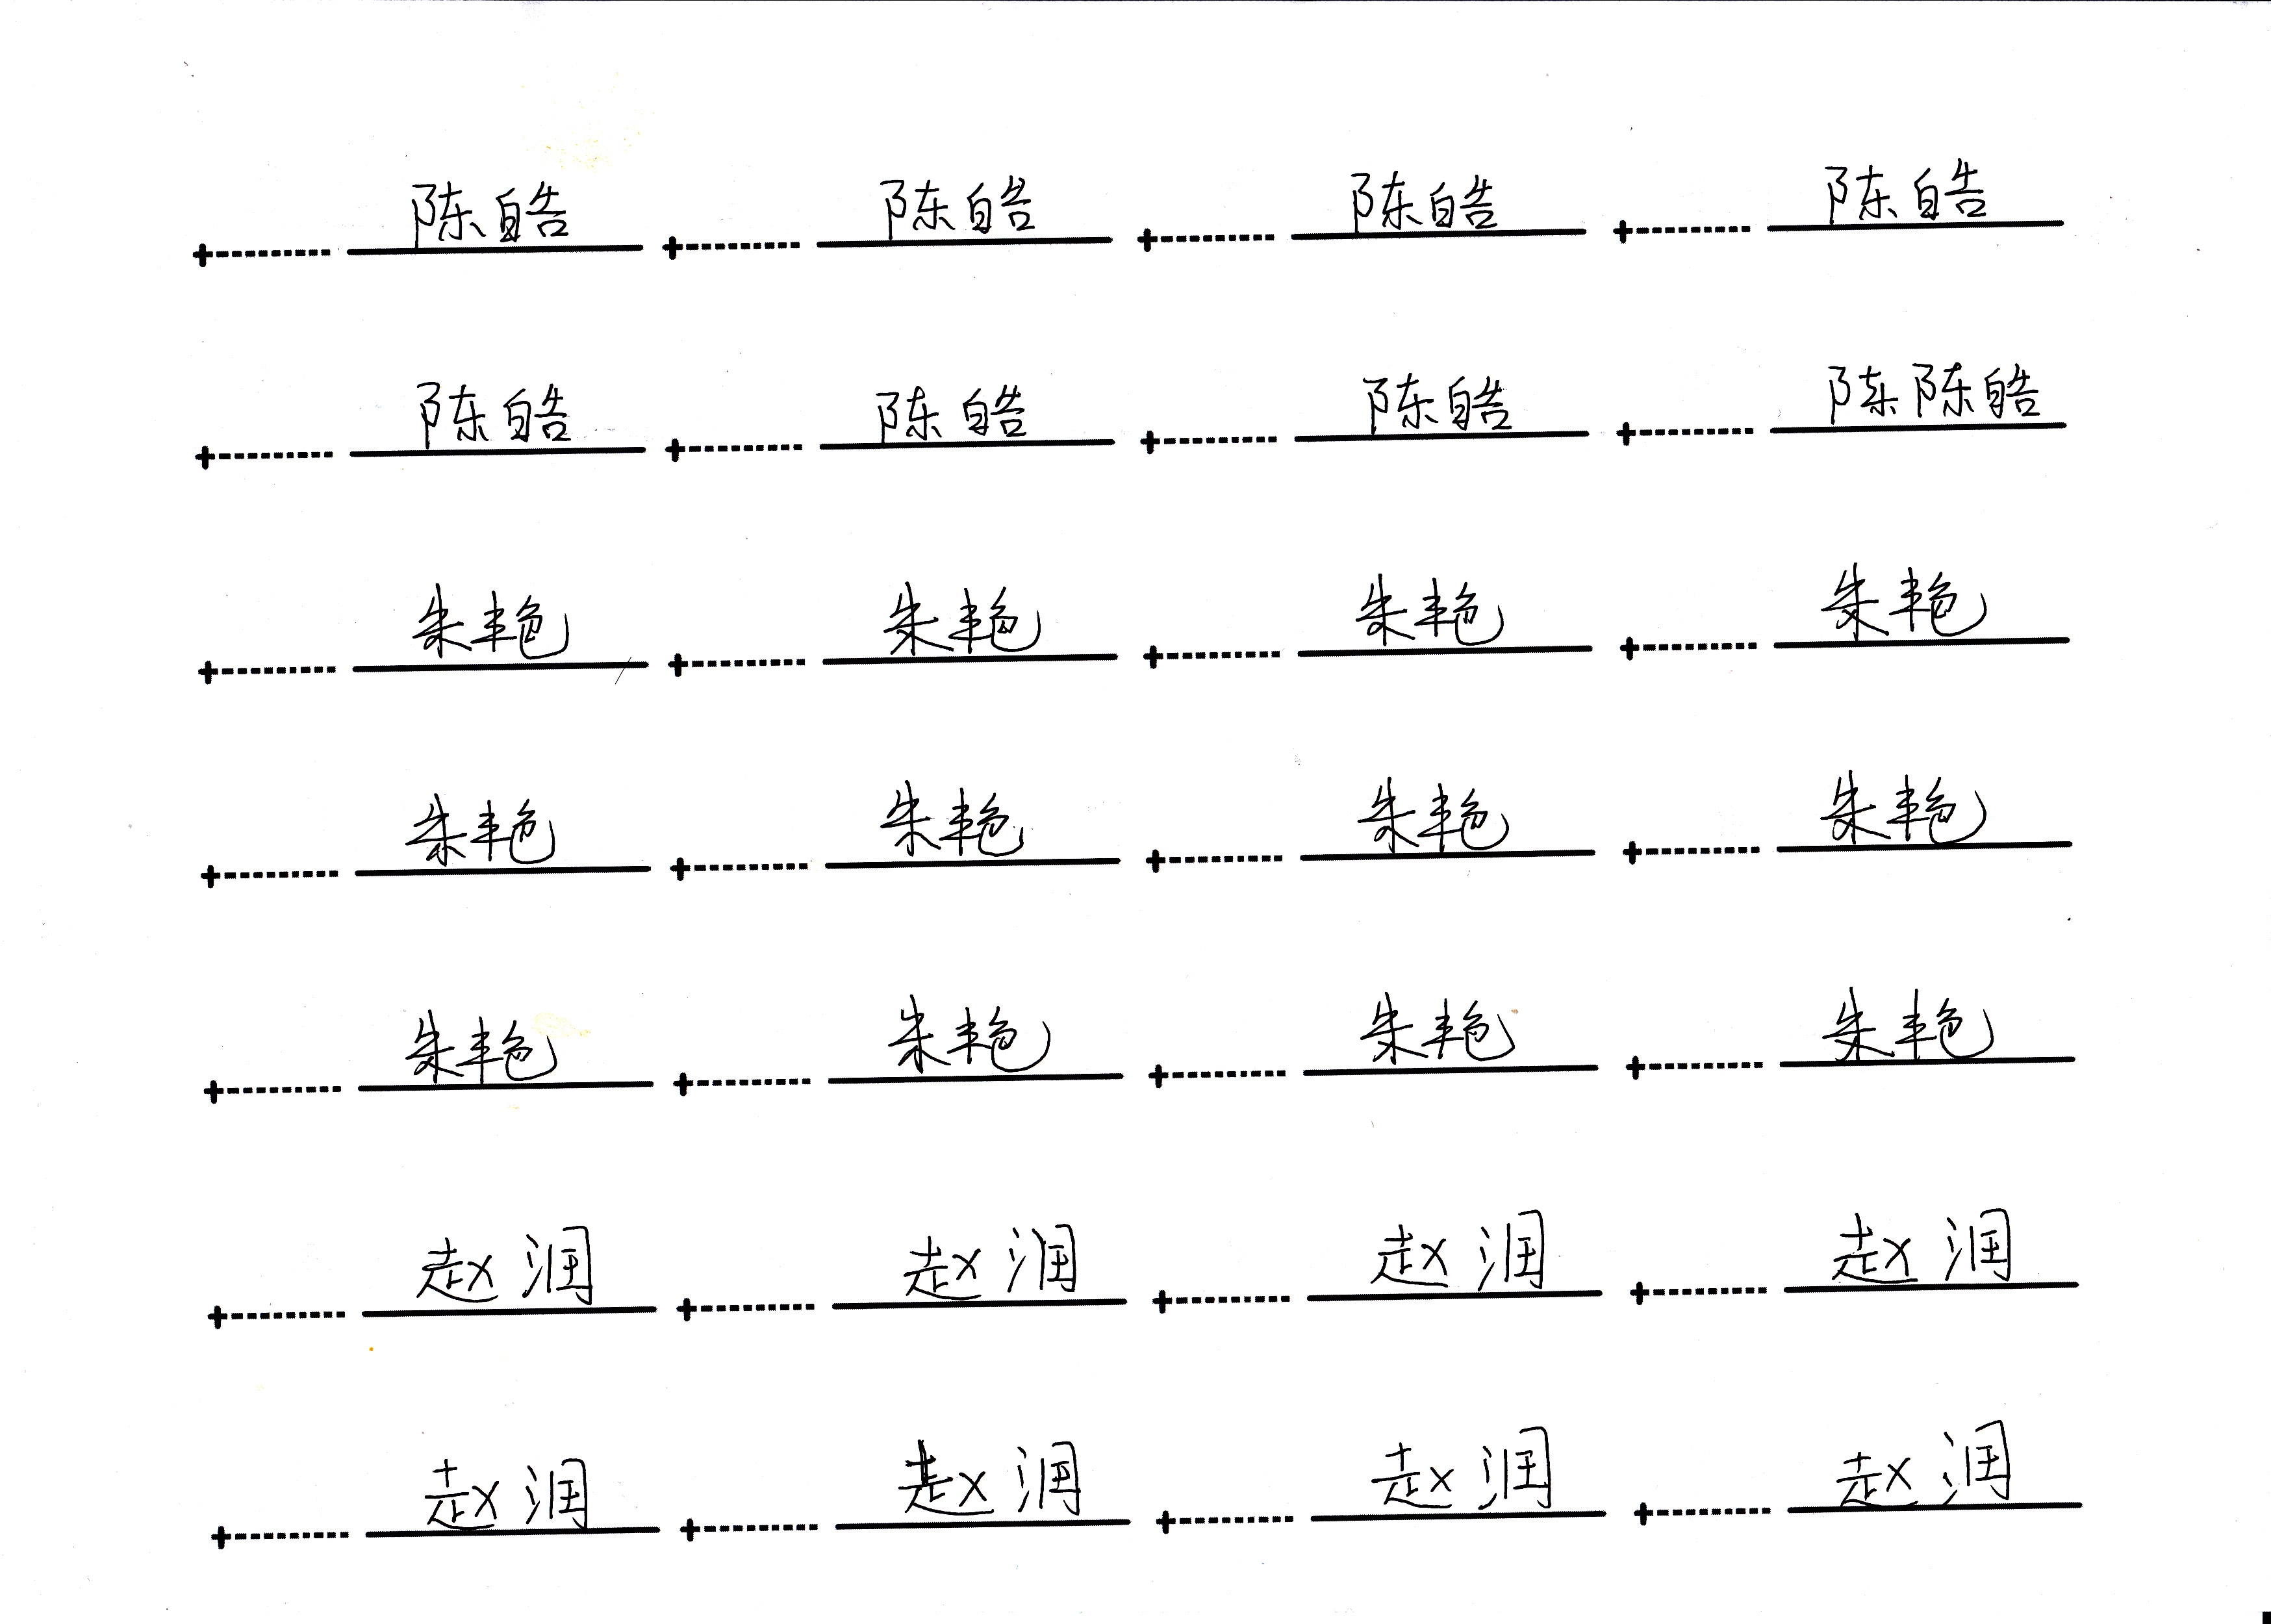 陈皓 陈皓 陈皓 陈皓
陈皓 陈皓 陈皓 陈陈皓
朱艳 朱艳 朱艳 朱艳
朱艳 朱艳 朱艳 朱艳
朱艳 朱艳 朱艳 朱艳
赵润 赵润 赵润 赵润
赵润 赵润 赵润 赵润